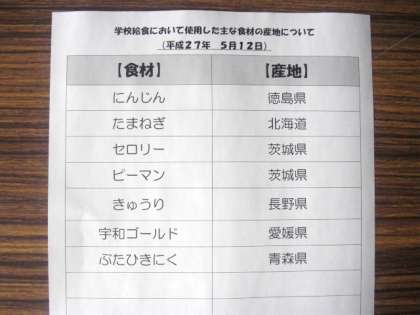 学校給食において使用した主な食材の産地について
（平成２７年　５月１２日）
【食材】　【産地】
にんじん　徳島県
たまねぎ　北海道
セロリー　茨城県
ピーマン　茨城県
きゅうり　長野県
宇和ゴールド　愛媛県
ぶたひきにく　青森県